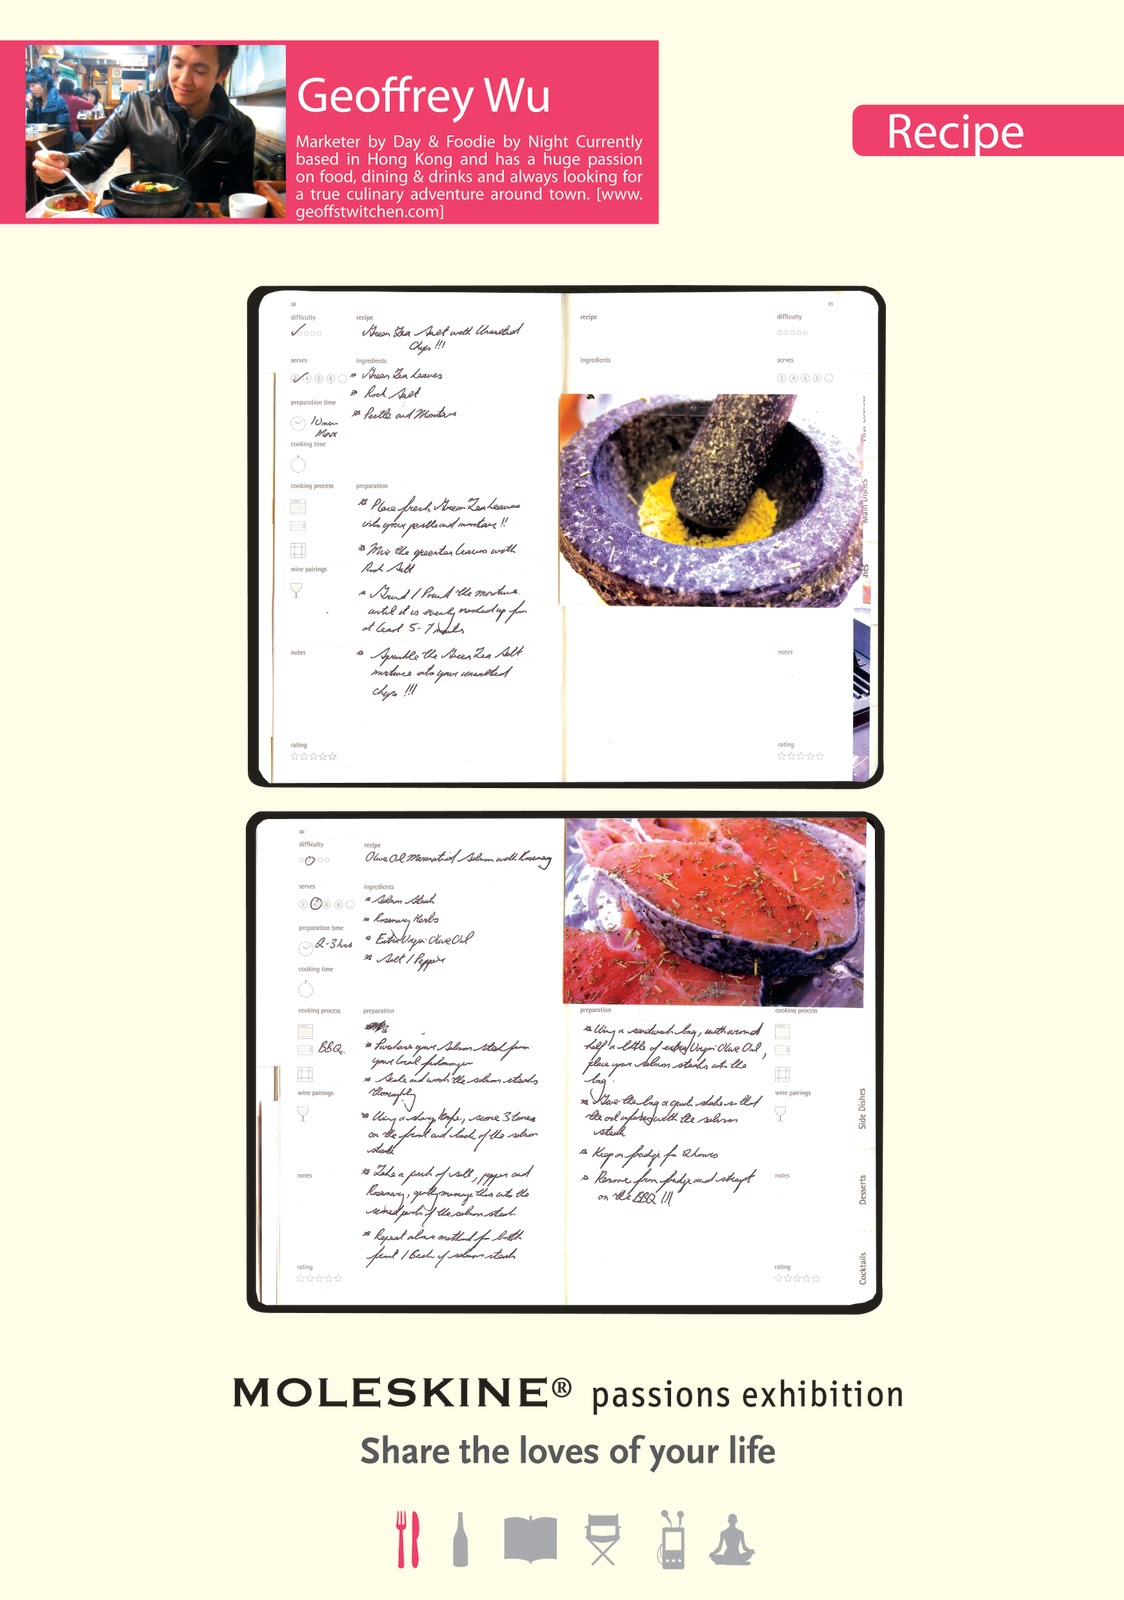 Geoffrey Wu
Marketer by Day & Foodie by Night Currently
based in Hong Kong and has a huge passion
on food, dining & drinks and always looking for
a true culinary adventure around town. [www.
geoffstwitchen.com]
Recipe
difficulty
recipe
Green Tea Salt with Unsalted
Chips !!!
serves
2 4 6 8 ...
ingredients
Green Tea Leaves
Rock Salt
Pestle and Mortar
preparation time
10 min
Max
cooking time
cooking process
preparation
Place fresh Green Tea Leaves
into your pestle and mortar !!
Mix the greentea leaves with
Rock Salt
wine pairings
Grind / Pound the mixture
until it is evenly mashed up for
at least 5-7 minutes
notes
Sprinkle the Green Tea Salt
mixture into your unsalted
chips !!!
rating
recipe
difficulty
ingredients
serves
2 4 6 8 ...
Main Dishes
notes
rating
difficulty
recipe
Olive Oil Marinated Salmon with Rosemary
serves
2 4 6 8 ...
ingredients
Salmon Steak
Rosemary Herbs
Extra Virgin Olive Oil
Salt / Pepper
preparation time
2-3 hrs
cooking time
cooking process
BBQ.
preparation
Purchase your Salmon steak from
your local fishmonger
Scale and wash the salmon steaks
thoroughly
wine pairings
Using a sharp knife, score 3 times
on the front and back of the salmon
steak
notes
Take a pinch of salt, pepper and
Rosemary, gently massage this into the
scored parts of the salmon steak
Repeat above method for both
front / Back of salmon steak
rating
preparation
cooking process
Using a sandwich bag, with around
half a little of extra Virgin Olive Oil,
place your salmon steaks into the
bag.
Give the bag a quick shake so that
the oil infuses with the salmon
steak
Keep in fridge for 2 hours
Remove from fridge and straight
on the BBQ !!!
wine pairings
notes
rating
Side Dishes
Desserts
Cocktails
MOLESKINE® passions exhibition
Share the loves of your life